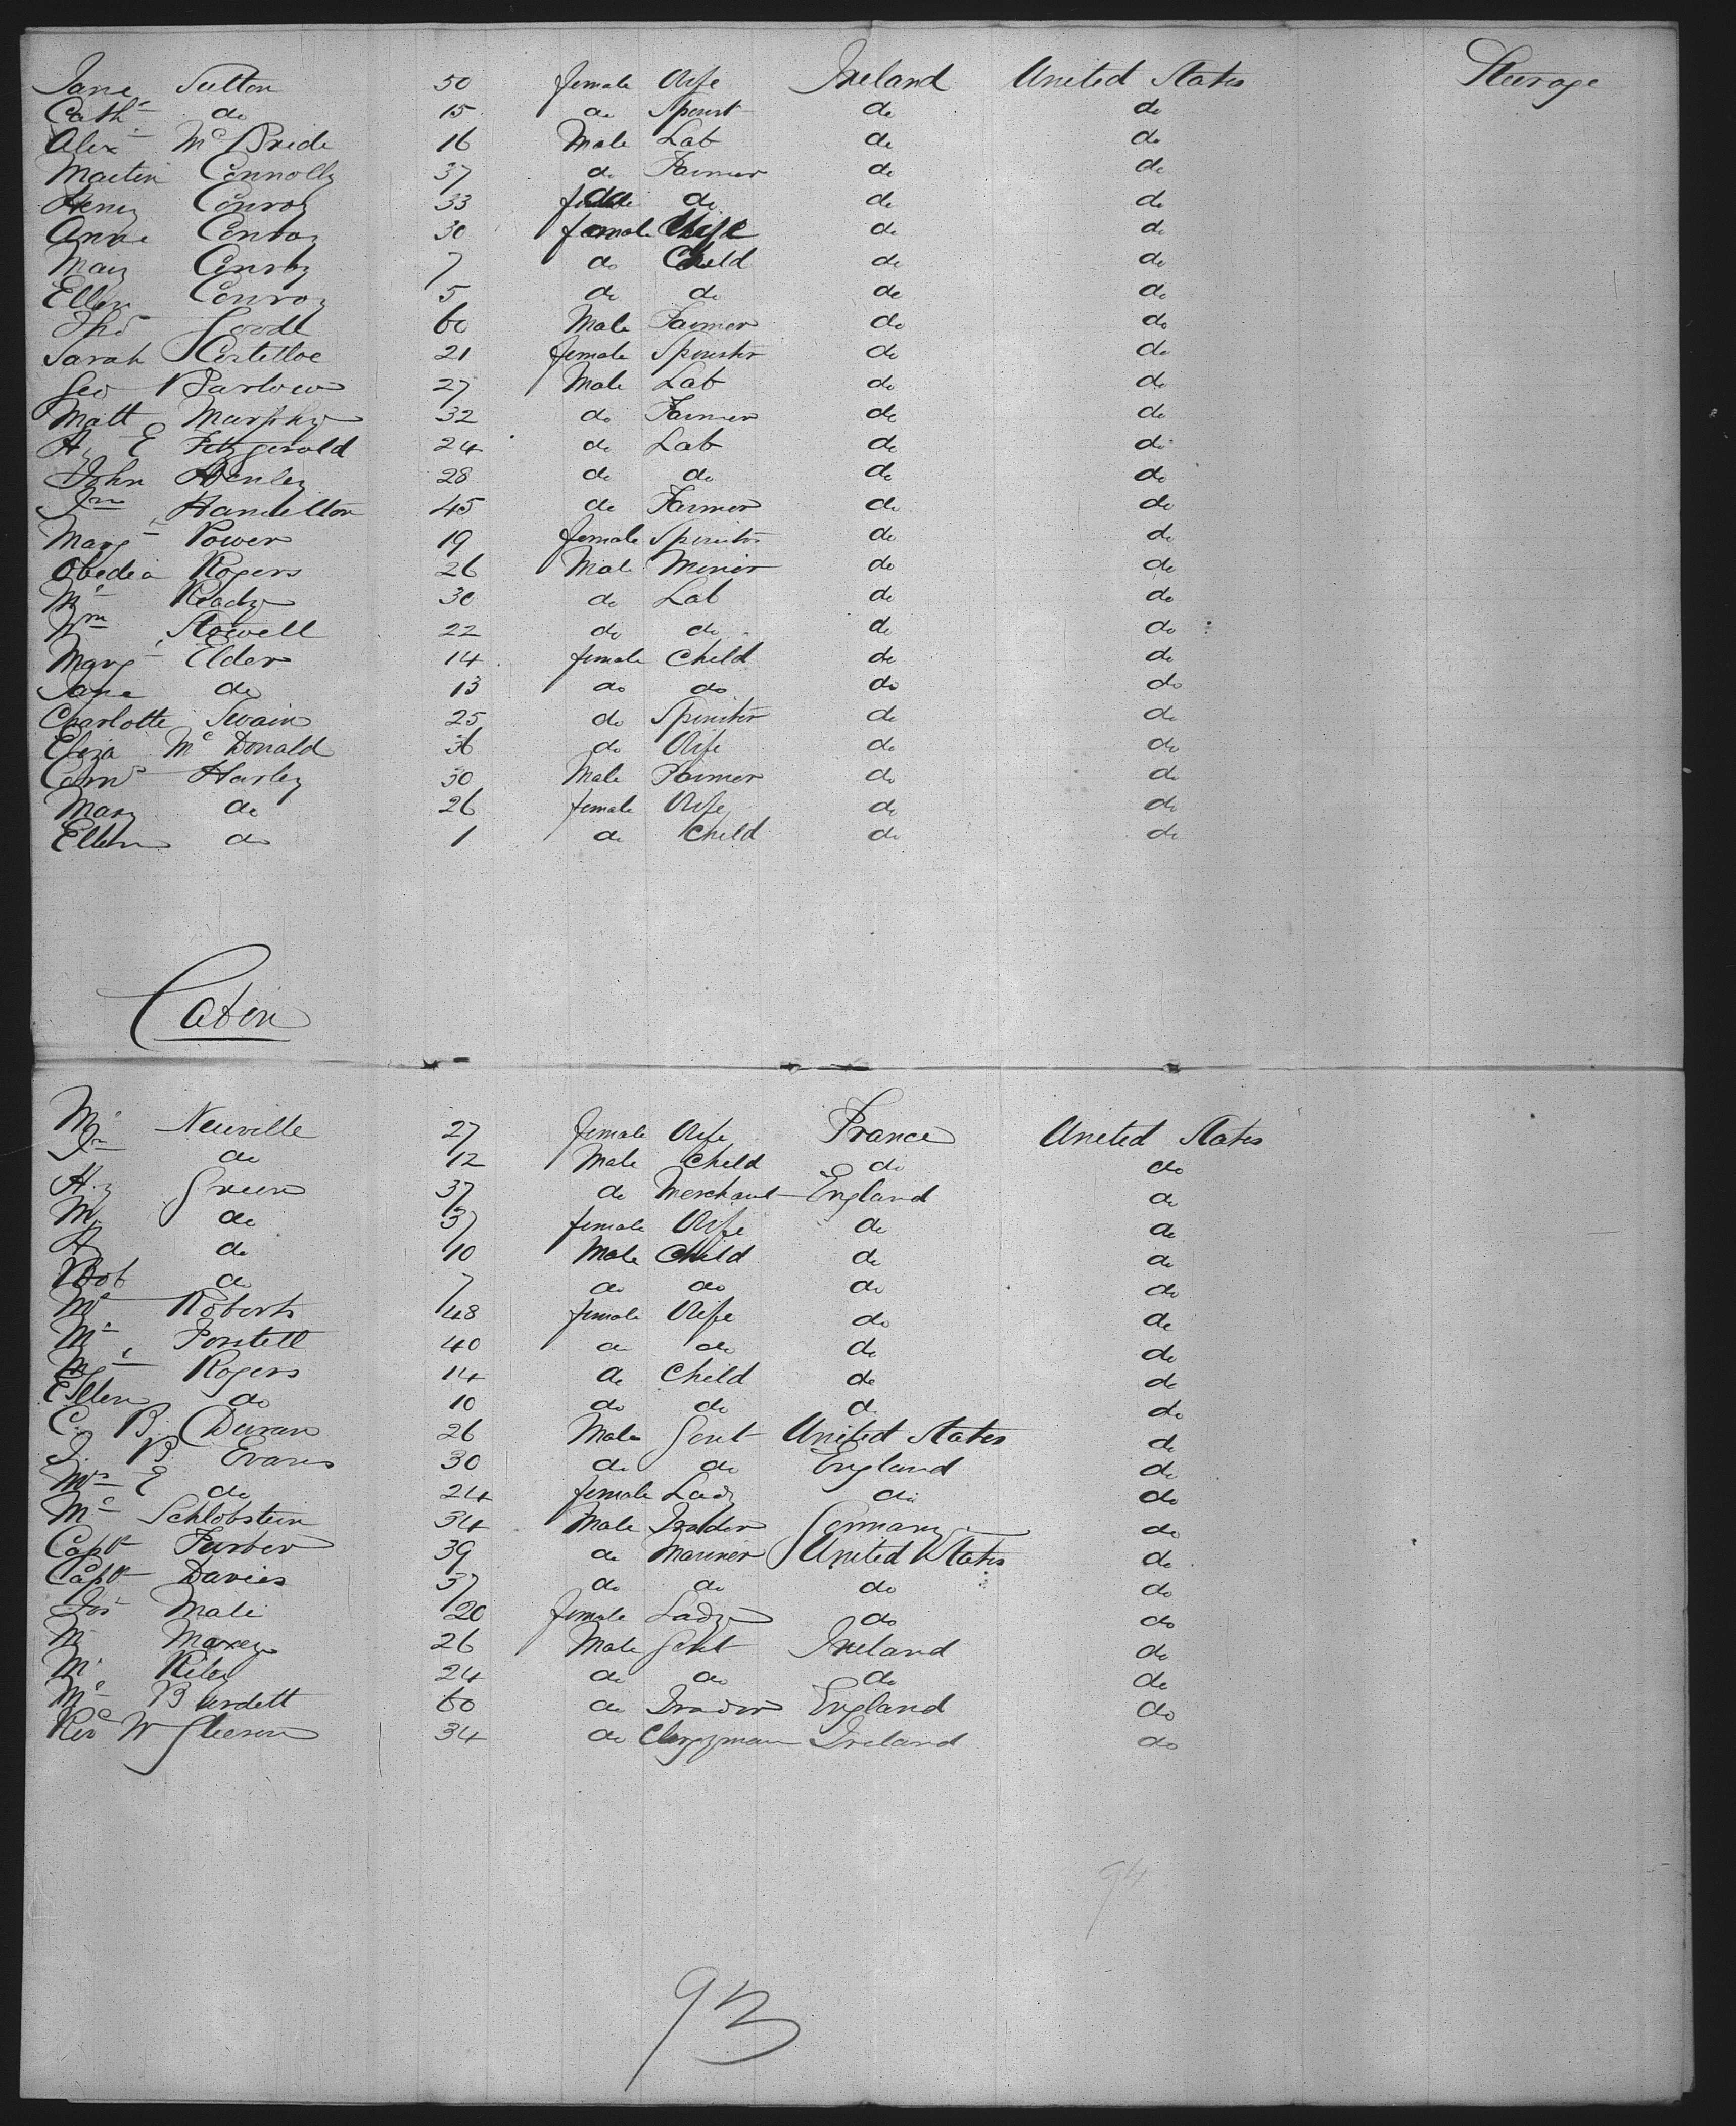 Jane Sutton 50 female Wife Ireland United States Steerage
Cath do 15 do Spinst do do
Alex McBride 16 Male Lab do do
Martin Connolly 37 do Farmer do do
Henry Conroy 33 do do do do
Anne Conroy 30 female Wife do do
Mary Conroy 7 do Child do do
Ellen Conroy 5 do do do do
Thos 60 Male Farmer do do
Sarah Costelloe 21 female Spinster do do
Geo Barlow 27 Male Lab do do
Matt Murphy 32 do Farmer do do
Hy E Fitzgerald 24 do Lab do do
John Henley 28 do do do do
Jno Hamilton 45 do Farmer do do
Marg Power 19 female Spinster do do
Obedia Rogers 26 Male Miner do do
Mr Ready 30 do Lab do do
Wm Stowell 22 do do do do
Marg Elder 14 female Child do do
Jane do 13 do do do do
Charlotte Swain 25 do Spinster do do
Eliza McDonald 36 do Wife do do
Harley 30 Male Farmer do do
Mary do 26 female Wife do do
Ellen do 1 do Child do do
Cabin
Neuville 27 female Wife France United States
Jn do 12 Male Child do do
Hy Green 37 do Merchant England do
M do 37 female Wife do do
Hy do 10 Male Child do do
Rob do 7 do do do do
Mrs Roberts 48 female Wife do do
40 do do do do
Mgt Rogers 14 do Child do do
Ellen do 10 do do do do
C. B. Duran 26 Male Gent United States do
J. B. Evans 30 do do England do
Mrs E do 24 female Lady do do
Mr Schlobstein 34 Male Trader Germany do
Capt Furber 39 do Mariner United States do
Capt Davies 37 do do do do
Jos Male 20 female Lady do do
M Maxey 26 Male Gent Ireland do
Mr Riley 24 do do do do
Mr Burdett 60 do Trader England do
Rev W Gleeson 34 do Clergyman Ireland do
94
93